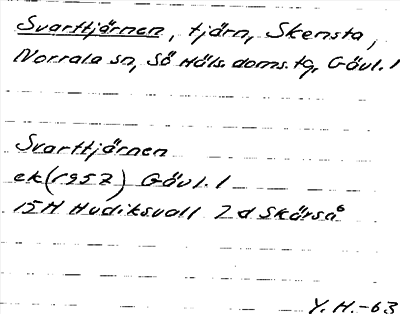 Svarttjärnen, tjärn, Skensta,
Norrala sn, Sö Häls. doms. tg, Gävl. l
Svarttjärnen
ek (1957) Gävl. l
15H Hudiksvall 2d Skärså
Y. H. -63